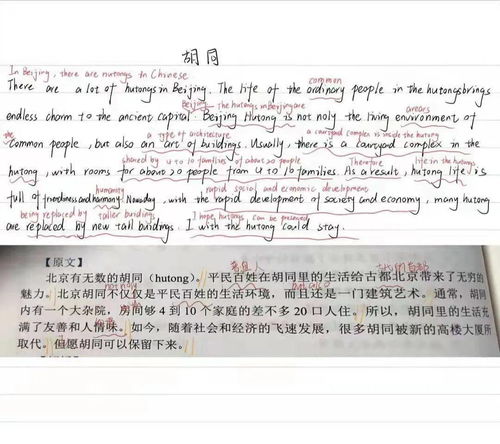 胡同
In Beijing, there are hutongs in Chinese
common
There are a lot of hutongs in Beijing. The life of the ordinary people in the hutongs brings
Beijing the hutongs in Beijing are areas
endless charm to the ancient capital. Beijing Hutong is not noly the living environment of
the a type of architecture a courtyard complex is inside the hutong
Common people, but also an art of buildings. Usually, there is a courtyard complex in the
shared by 4 to 10 families of about 20 people Therefore life in the hutongs
hutong, with rooms for about 20 people from 4 to 10 families. As a result, hutong life is
humanity rapid social and economic development
full of friendness and harmony. Nowaday, with the rapid development of society and economy, many hutong
being replaced by taller buildings I hope hutongs can be preserved
are replaced by new tall buildings. I with the hutong could stay.
【原文】
北京有无数的胡同（hutong）。平民百姓在胡同里的生活给古都北京带来了无穷的
not noly but also
魅力。北京胡同不仅仅是平民百姓的生活环境，而且还是一门建筑艺术。通常，胡同
内有一个大杂院，房间够4到10个家庭的差不多20口人住。所以，胡同里的生活充
满了友善和人情味。如今，随着社会和经济的飞速发展，很多胡同被新的高楼大厦所
取代。但愿胡同可以保留下来。